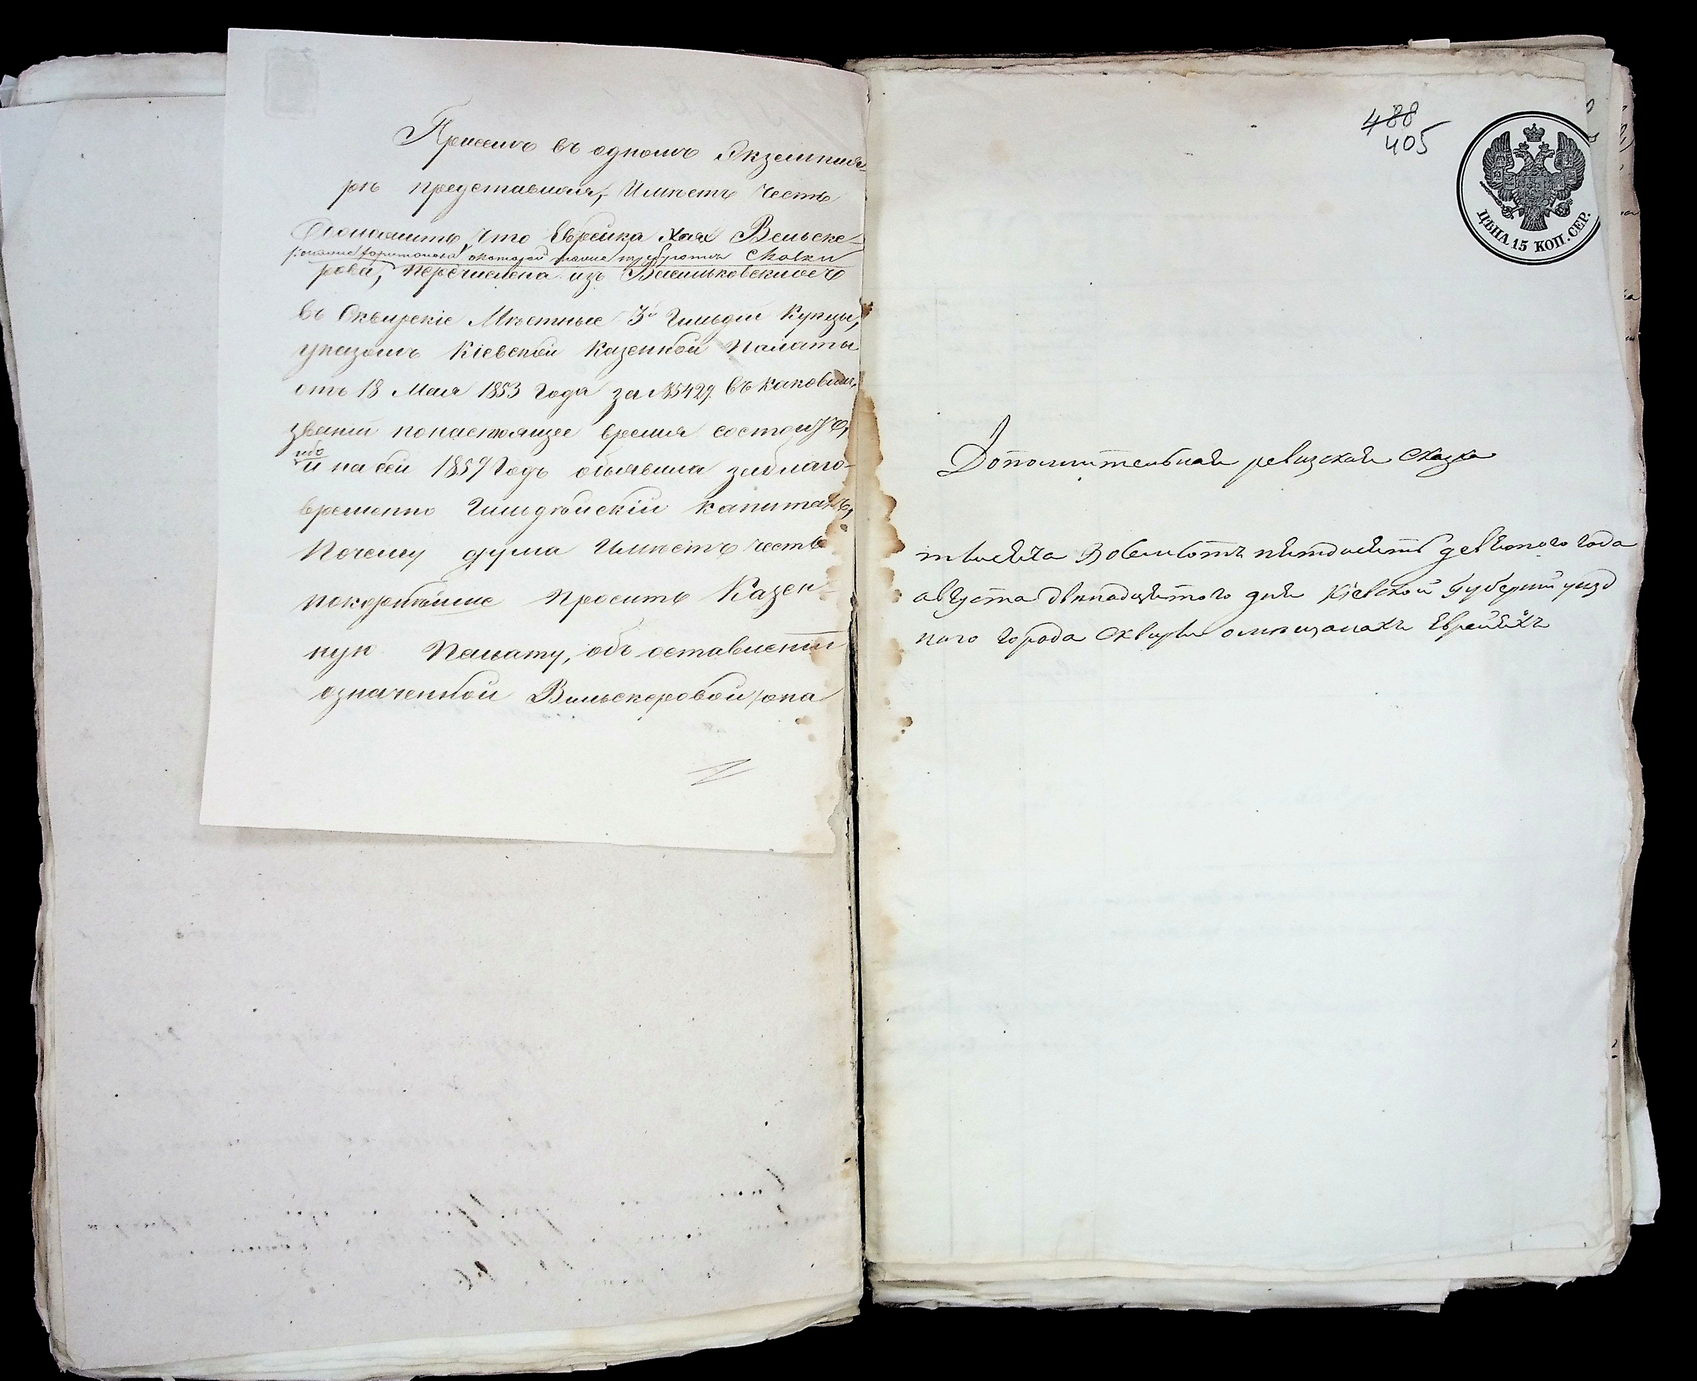 въ одномъ Экземпля-
рѣ представляя, Имѣетъ честь
что Еврейка Хая Вельске-
сказки
рова, перечислена изъ Васильковскихъ
въ Сквирскіе Мѣстные 3й Гильдіи Купцы,
указомъ Кіевской Казенной Палаты
отъ 18 Мая 1853 Года за №5429. въ каковомъ
званіи понастоящее время состоитъ,
ибо
и на сей 1857 Годъ объявила заблаго-
временно Гильдѣйскій капиталъ,
Почему дума Имѣетъ честь
покорнѣйше Просить Казен-
ную Палату, объ оставленіи
означенной Вельскеровой
488
405
ЦѢНА 15 КОП. СЕР.
Дополнительная ревизская сказка
тысяча Восемьсотъ пятдесятъ девятого года
августа двѣнадцятого дня Кіевской Губерніи уѣзд
ного Города Сквиры омѣщанахъ Евреяхъ